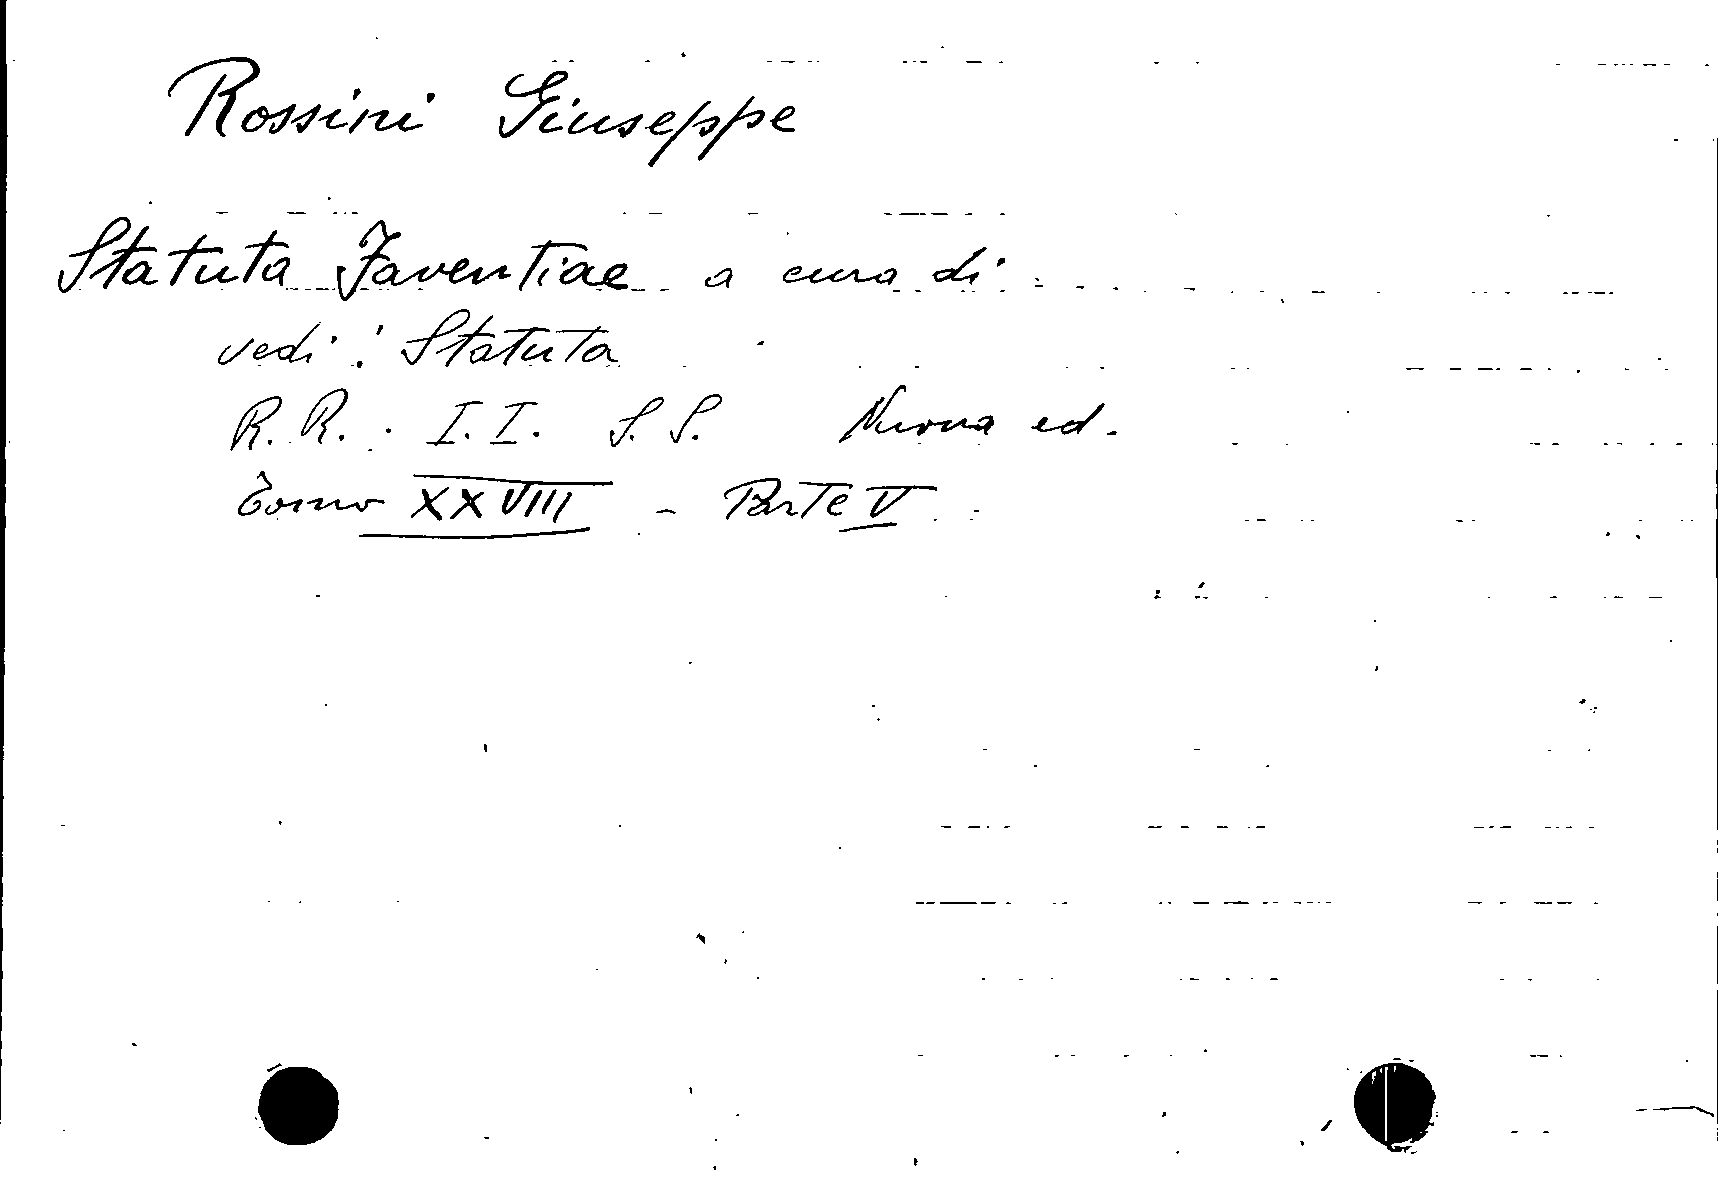 Rossini Giuseppe
Statuta Faventiae a cura di
vedi: Statuta
R. R. . I. I. S. S. Nuova ed.
Tomo XXVIII - Parte V